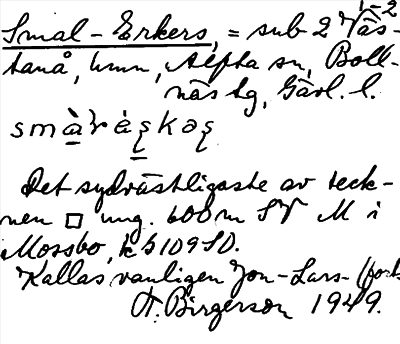 1-2
Smal-Erkers, = sub 2 Väs-
tanå, hmn, Alfta sn, Boll-
näs tg, Gävl. l.
Det sydvästligaste av teck-
nen □ ung. 600 m SV M i
Mossbo, k 5109 SO.
Kallas vanligen Jon-Lars- (forts.
A. Birgerson 1949.